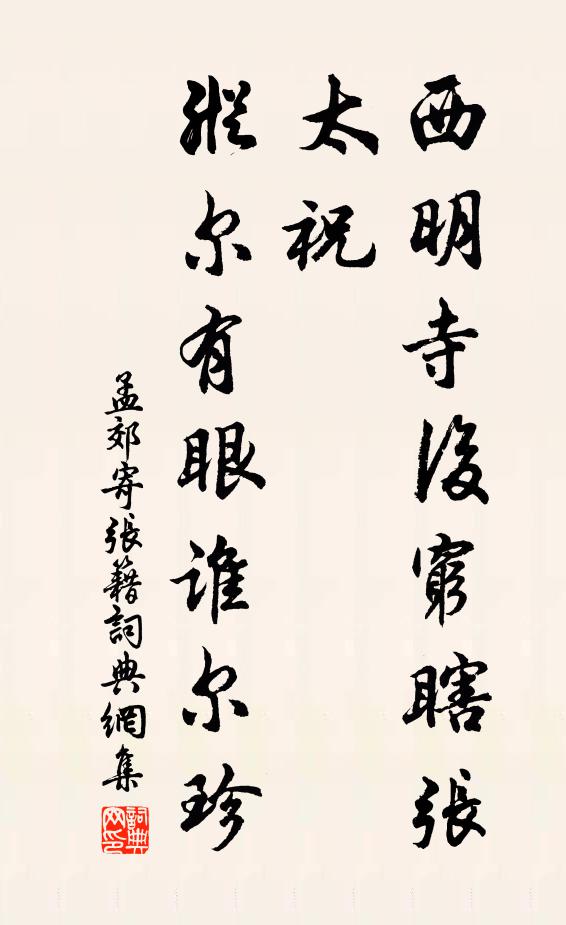 西明寺後窮瞎張
太祝
縱尔有眼誰尔珍
孟郊寄張籍詞典網集
詞典網印